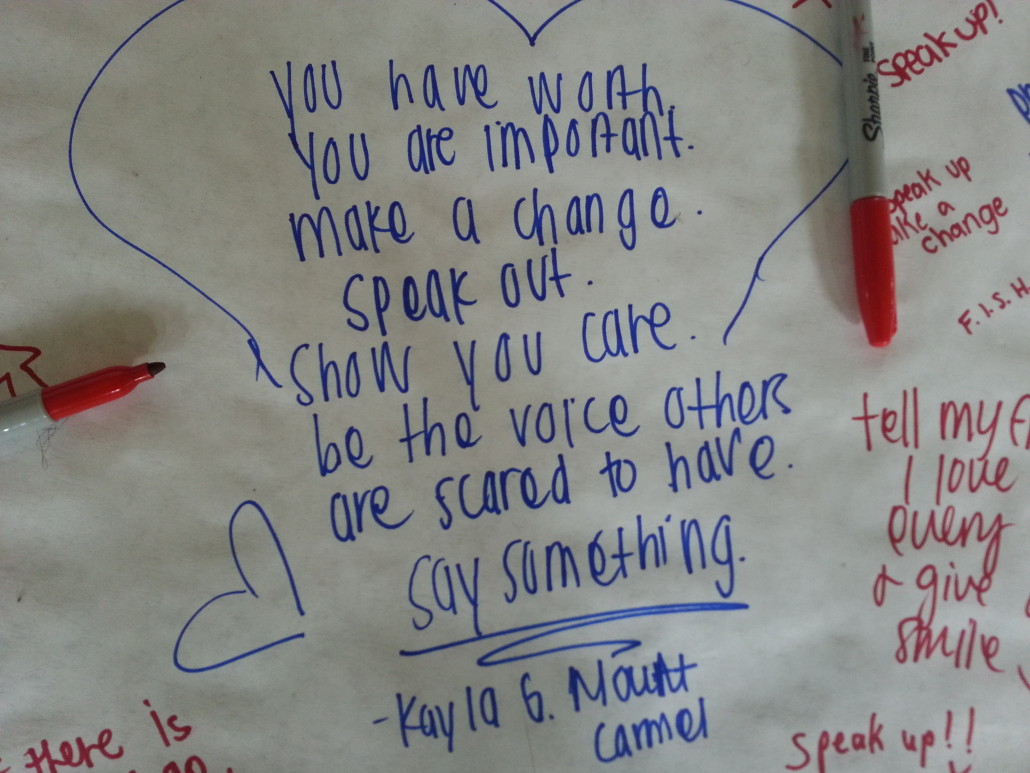 you have worth.
you are important.
make a change.
speak out.
show you care.
be the voice others
are scared to have.
say something.
-Kayla G. Mount
Carmel
Sharpie
speak up!
speak up
a
change
F.I.S.H.
tell my
I love
every
& give
smile
speak up!!
there is